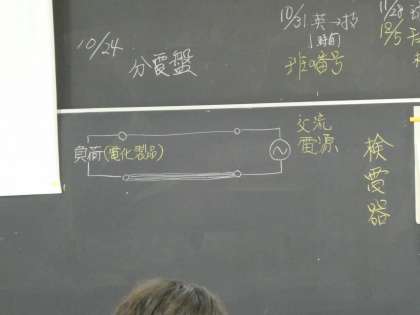 10/24
分電盤
10/31 英→技
1時間
班の番号
11/28
12/5
負荷(電化製品)
交流
電源
検電器